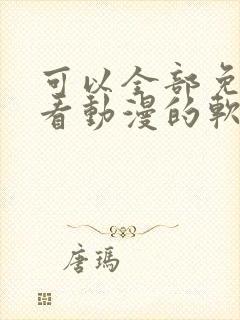 可以全部免
看動漫的軟
唐瑪